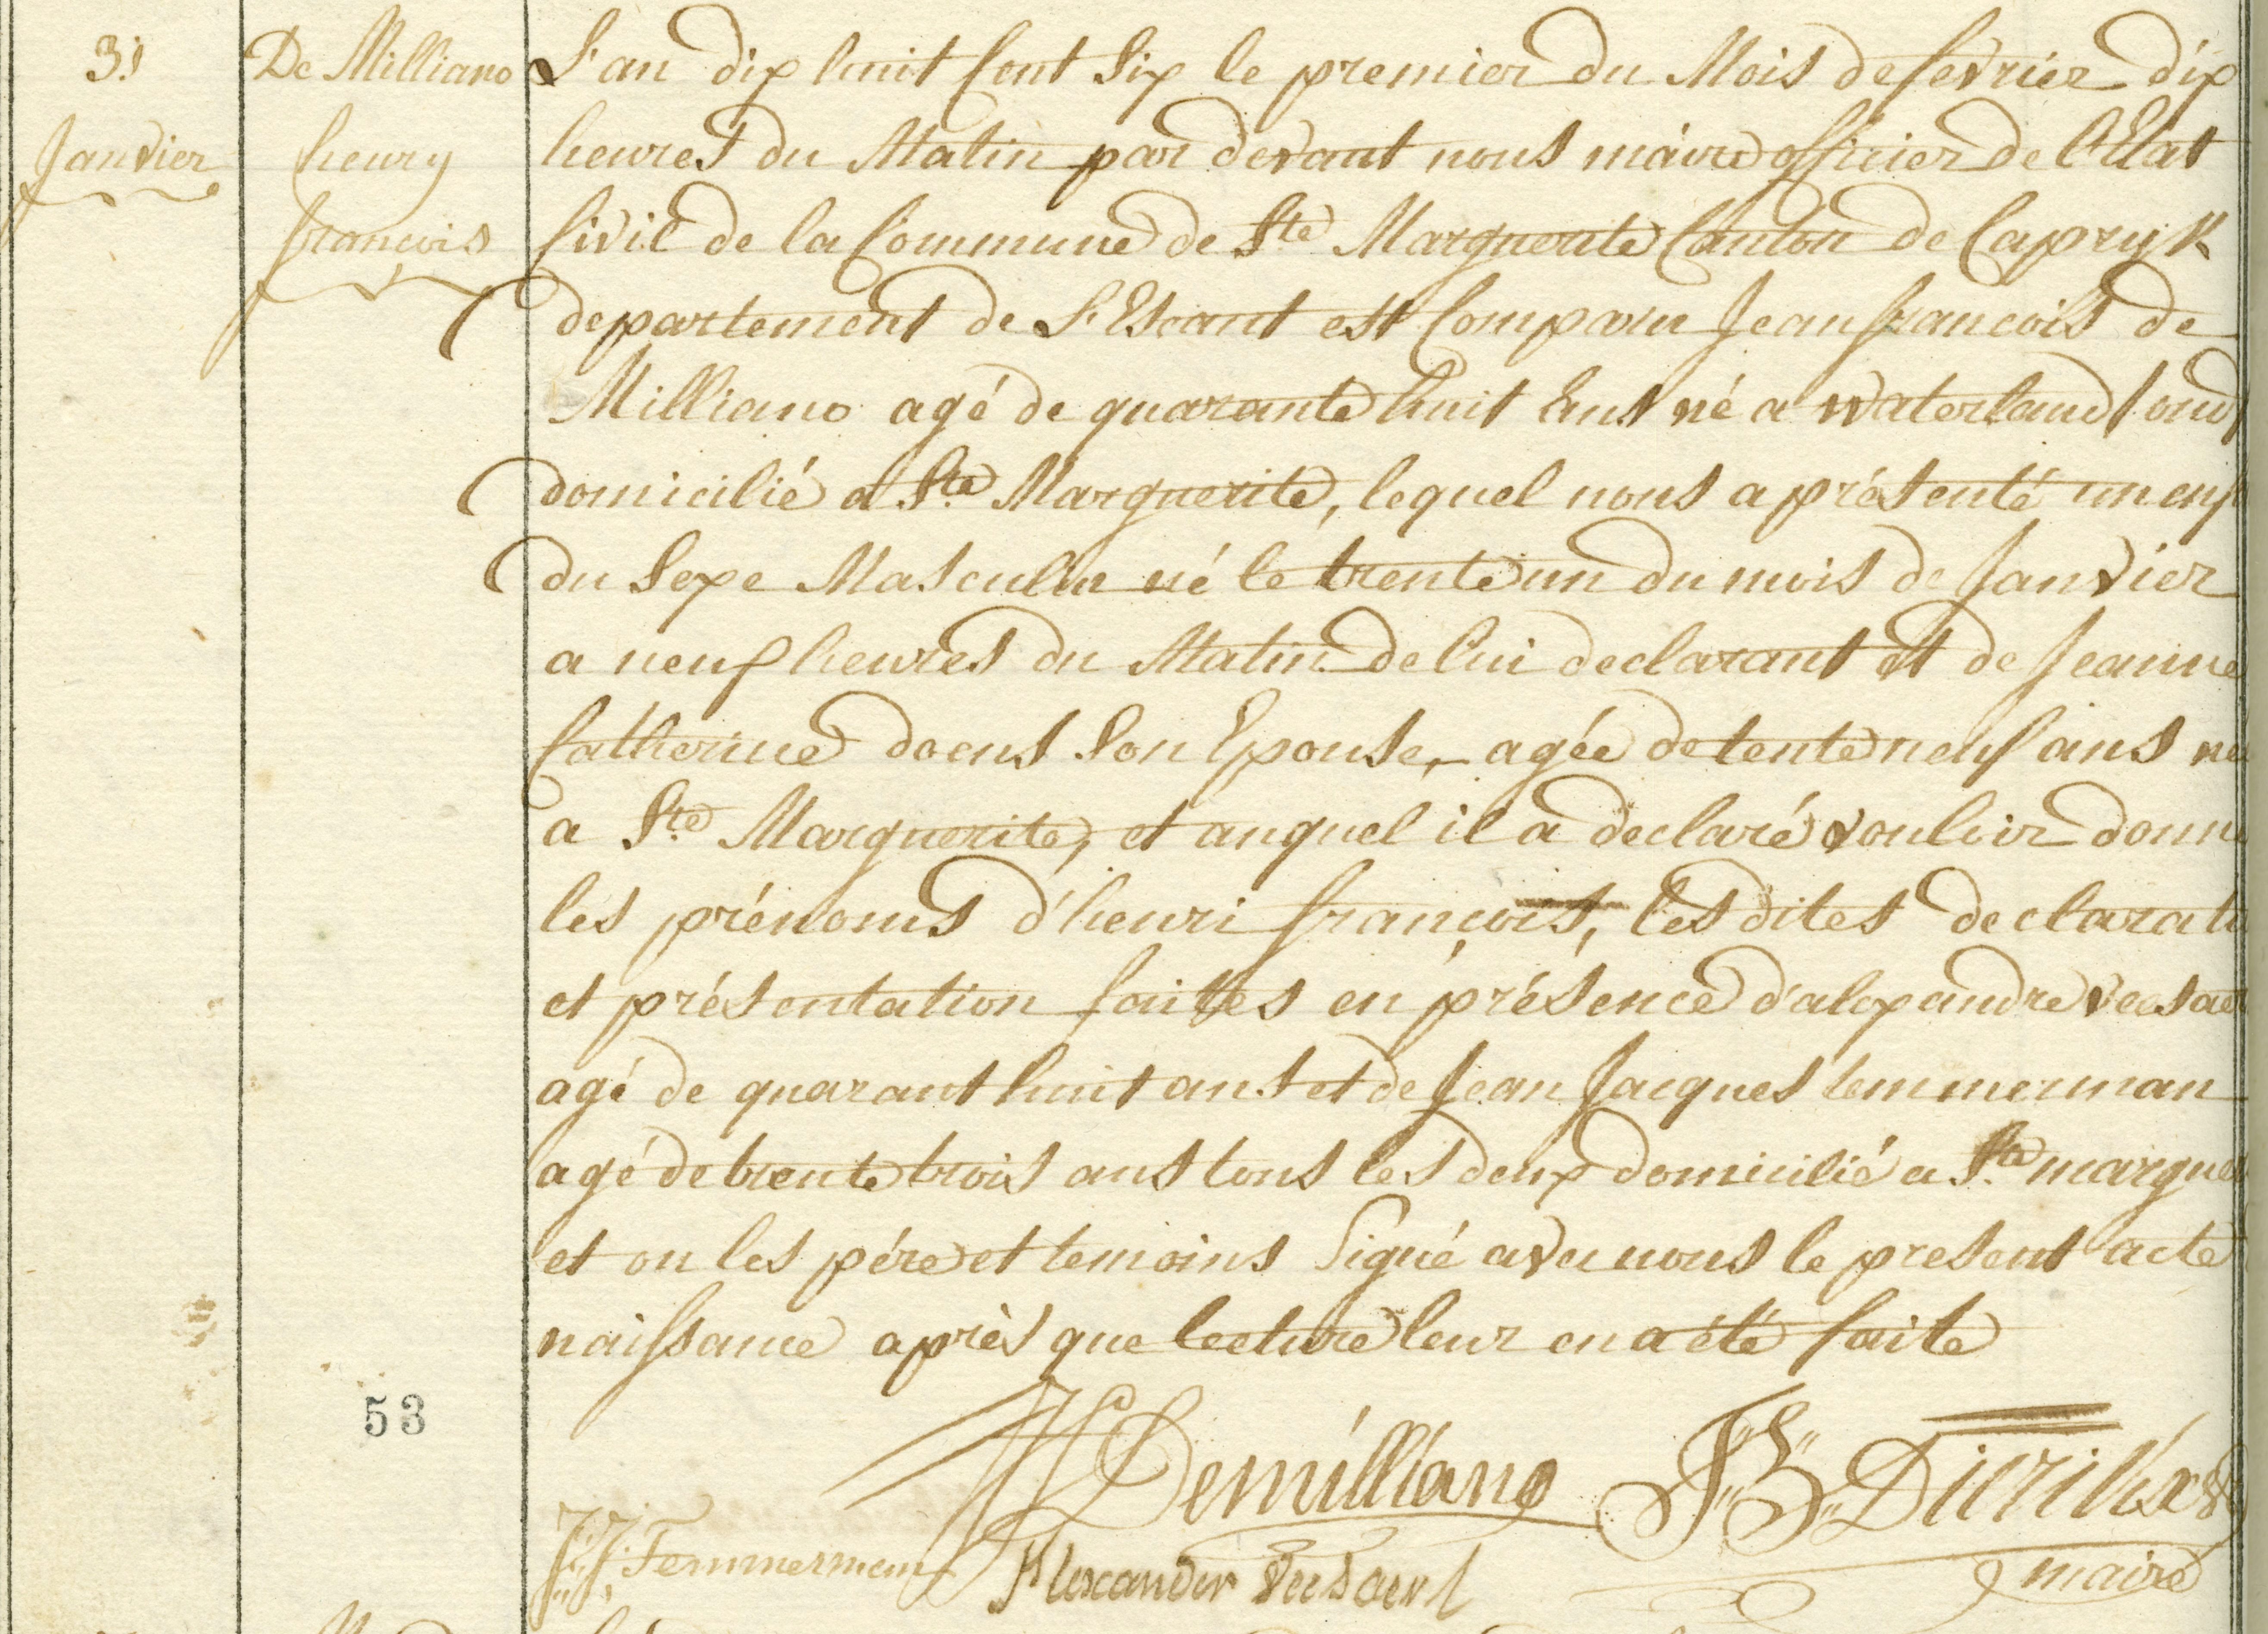 31
Janvier
De Milliano
henry
francois
L'an dix huit Cent Six le premier du Mois de fevrier dix
heures du Matin par devant nous maire officier de l'Etat
Civil de la Commune de Ste Marguerite Canton de Capryk
departement de L'Escaut est Comparu Jean francois de
Milliano agé de quarante huit Ans né a waterland oud
domicilié a Ste Marguerite, lequel nous a présenté un enf
du Sexe Masculin né le trente un du mois de Janvier
a neuf heures du Matin de lui declarant et de Jeanne
Catherine doens Son Epouse, agée de tente neuf ans né
a Ste Marguerite, et auquel il a declaré vouloir donne
les prénoms d'henri françois, les dites declarati
et présentation faites en présence d'alexandre veesaer
agé de quarant huit ans et de Jean Jacques temmerman
agé de trente trois ans tous les deux domicilié a Ste margue
et on les pére et temoins Signé avec nous le present acte
naissance après que lecture leur en a été faite
53
Demilliano
Dierikx
J: J: Temmerman
Alexander veesaert
maire